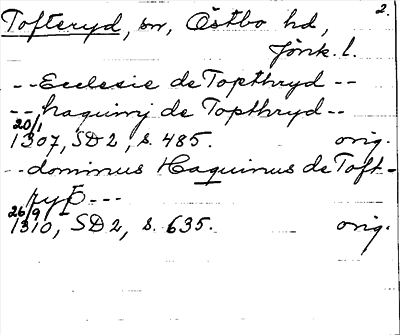 2.
Tofteryd, sn, Östbo hd,
Jönk. l.
-- Ecclesie de Topthryd --
-- haquinj de Topthryd --
20/1
1307, SD 2, s. 485. orig.
-- dominus Haquinus de Toft-
ryþ ---
26/9
1310, SD 2, s. 635. orig.